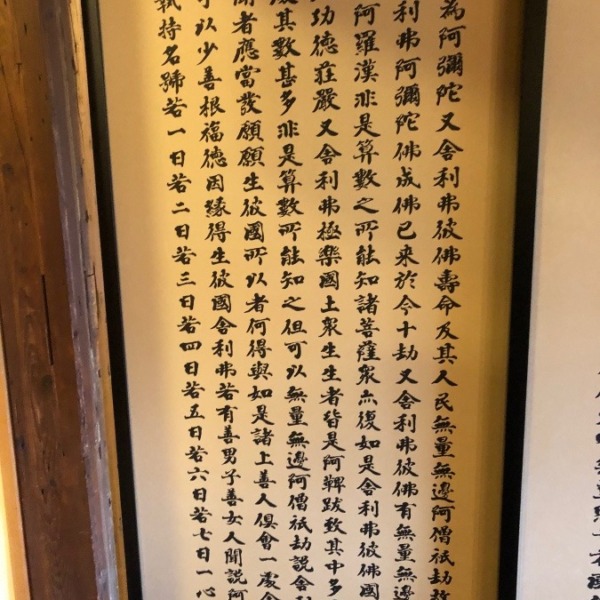 為阿彌陀又舍利弗彼佛壽命及其人民無量無邊阿僧祇劫故
利弗阿彌陀佛成佛已来於今十劫又舍利弗彼佛有無量無邊
阿羅漢非是算數之所能知諸菩薩衆亦復如是舍利弗彼佛國
功德莊嚴又舍利弗極樂國土衆生生者皆是阿鞞跋致其中多
其數甚多非是算數所能知之但可以無量無邊阿僧祇劫說舍
聞者應當發願願生彼國所以者何得與如是諸上善人俱會一處
可以少善根福德因緣得生彼國舍利弗若有善男子善女人聞說阿
執持名號若一日若二日若三日若四日若五日若六日若七日一心